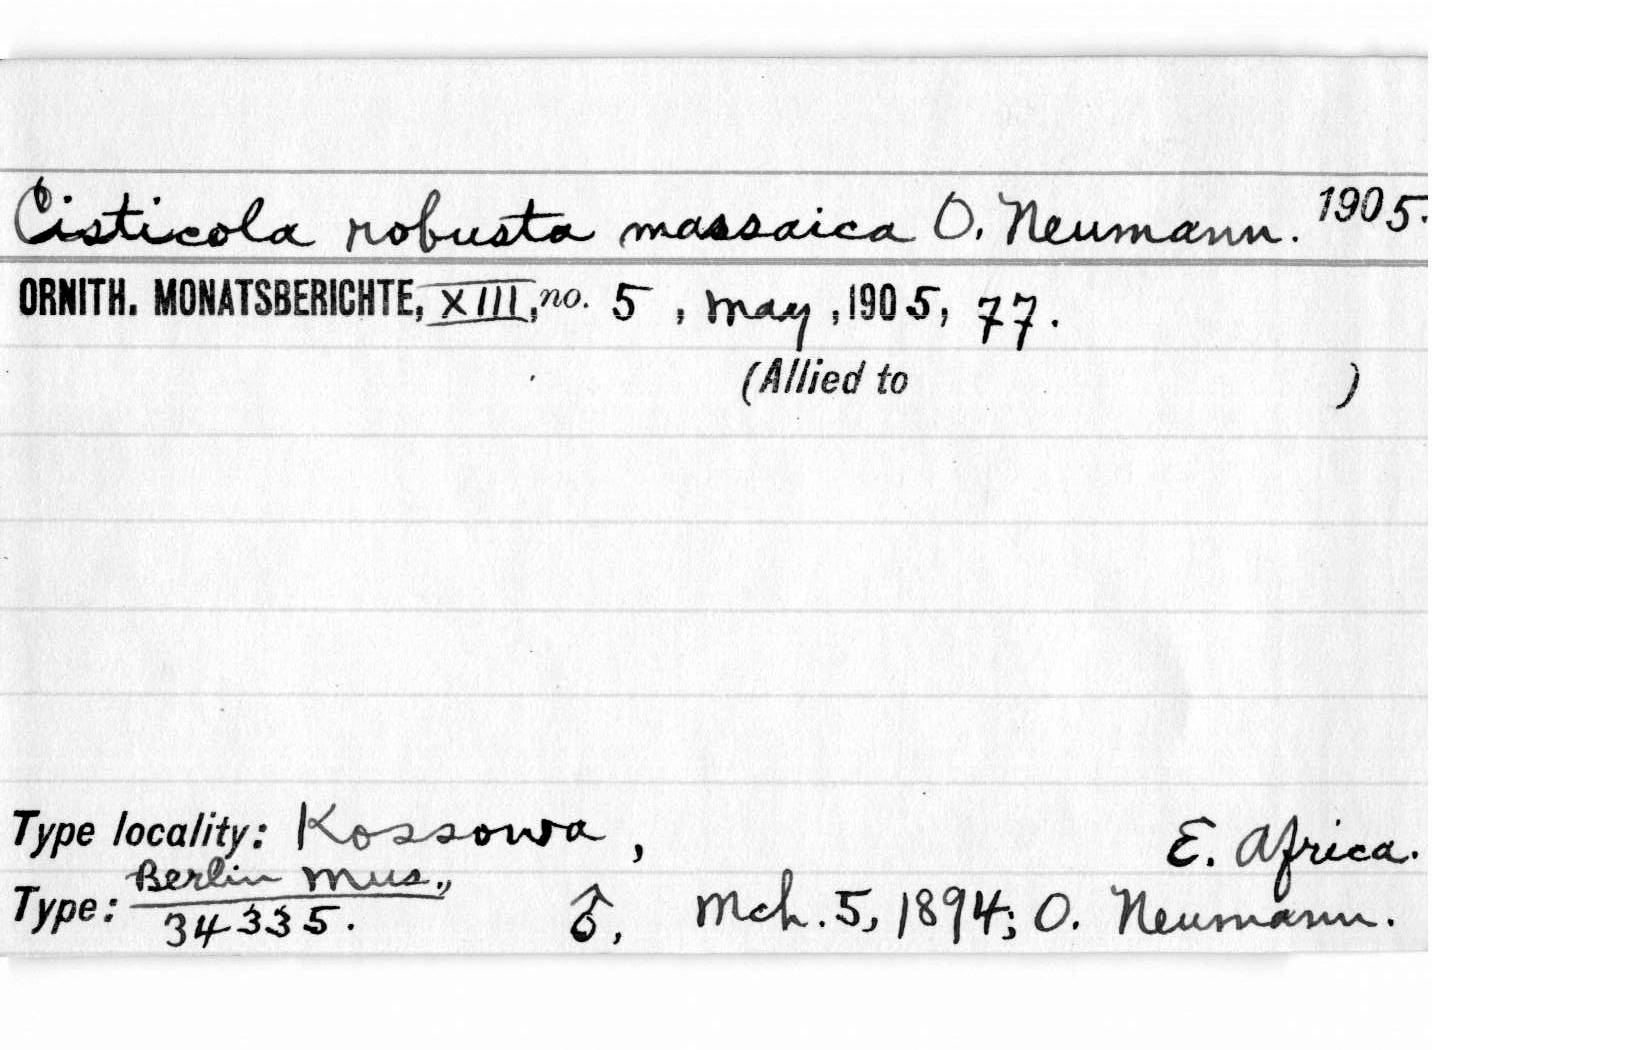 Cisticola robusta massaica O. Neumann. 1905.
ORNITH. MONATSBERICHTE, XIII, no. 5, May, 1905, 77.
(Allied to )
Type locality: Kossowa, E. Africa.
Type: Berlin Mus., 34335. ♂, Mch. 5, 1894; O. Neumann.